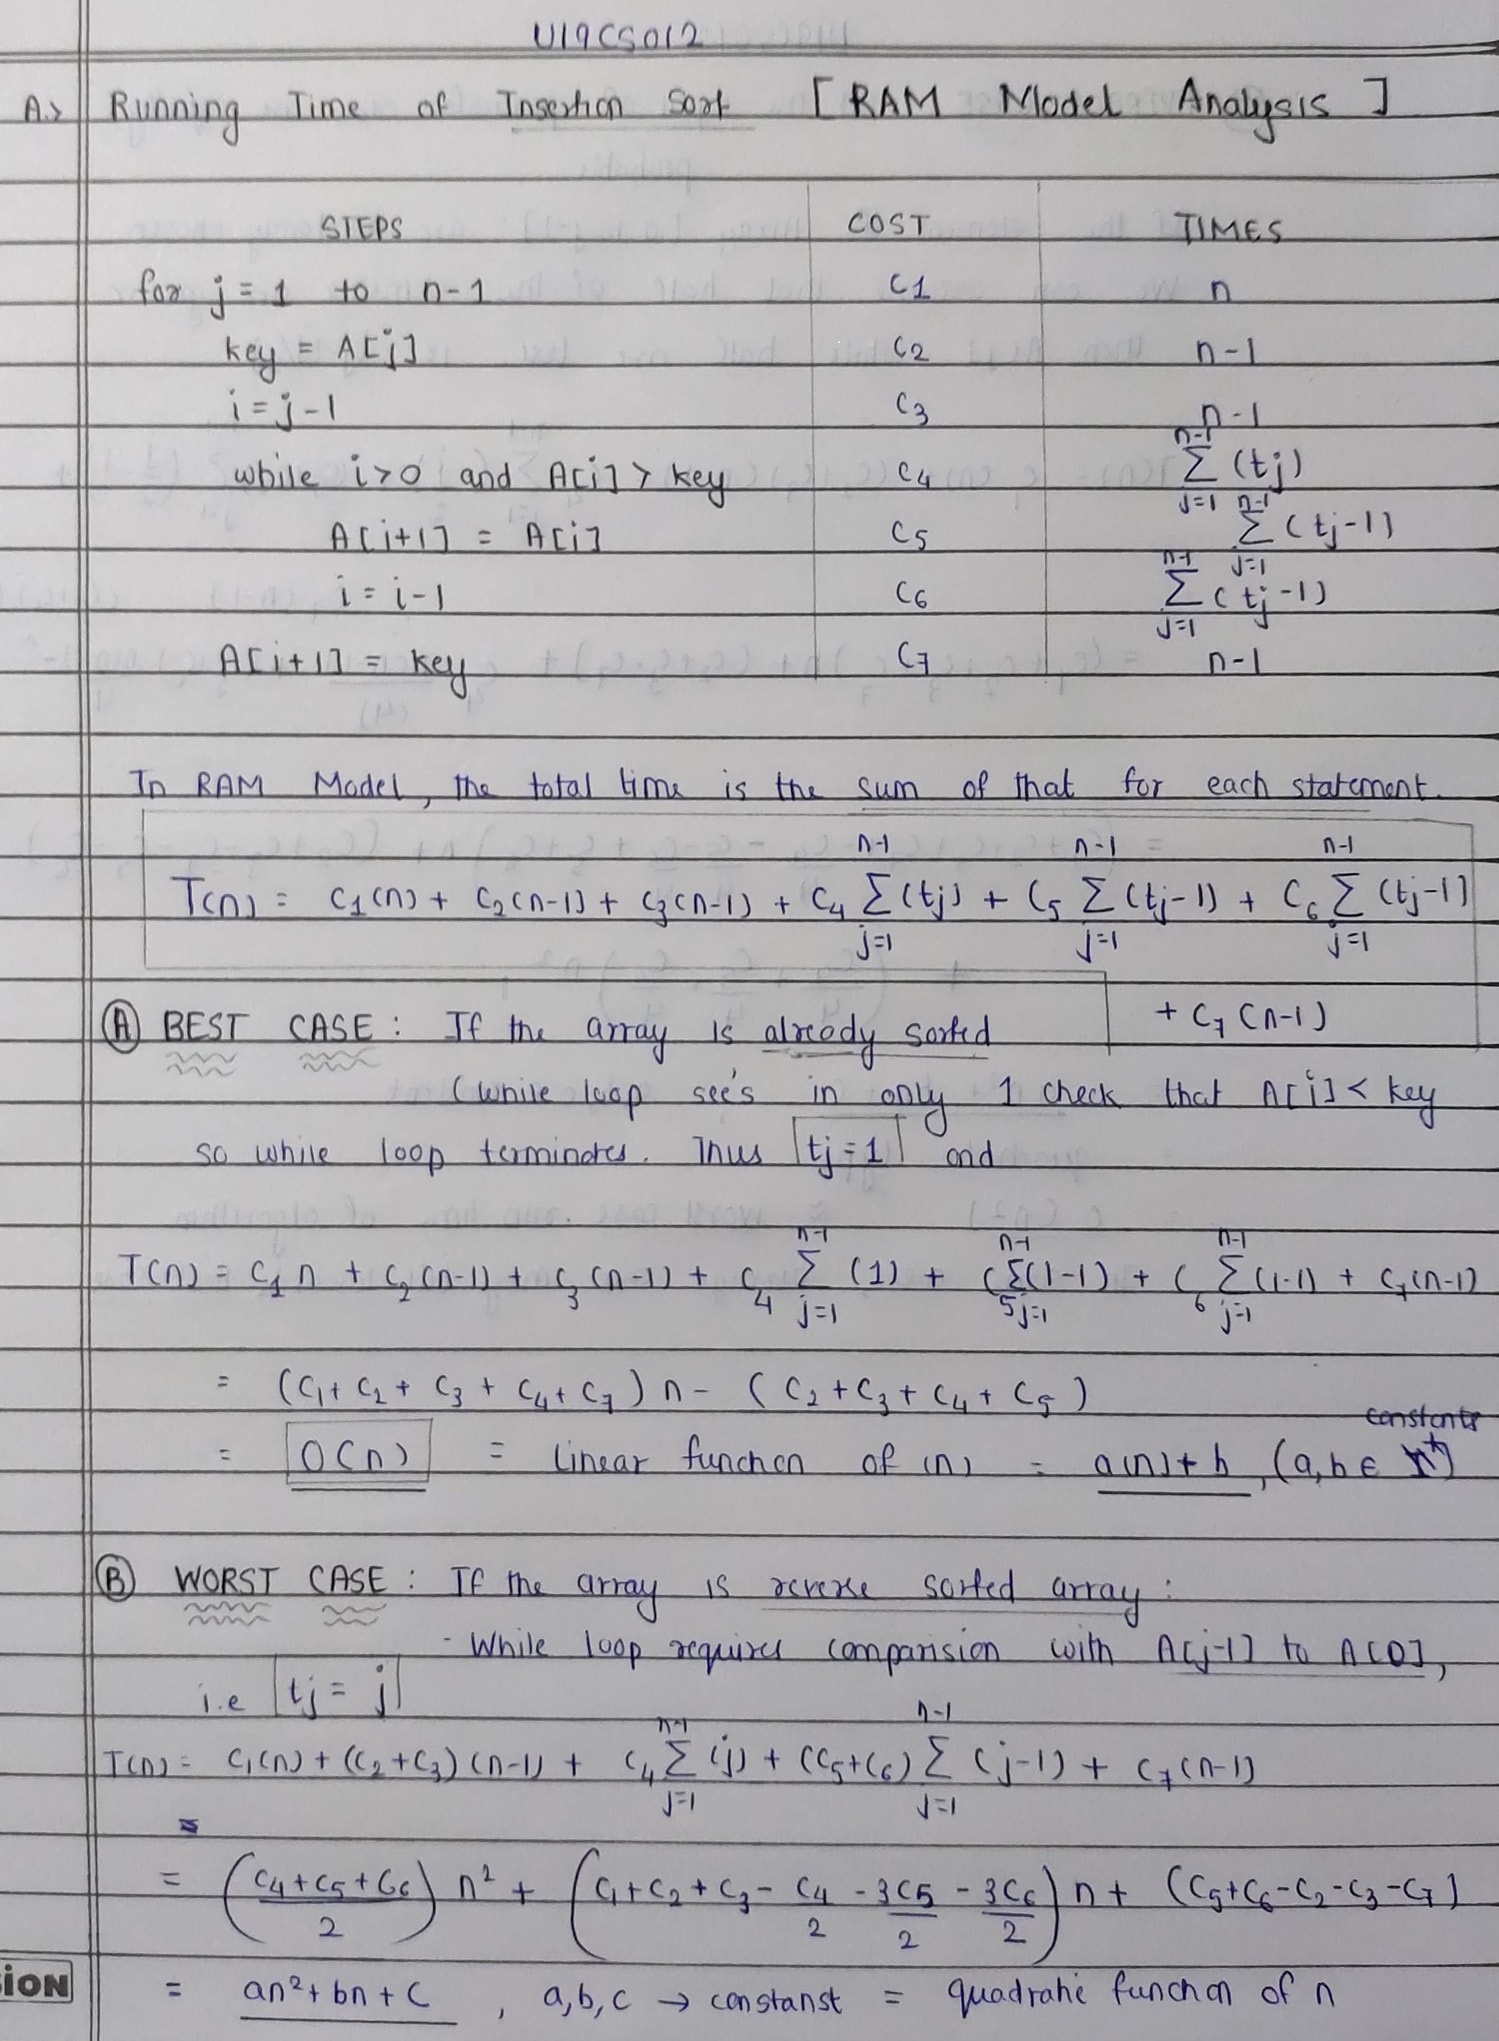 U19CS012
A.> Running Time of Insertion Sort [ RAM Model Analysis ]
STEPS COST TIMES
for j = 1 to n-1 C1 n
key = A[j] C2 n-1
i = j-1 C3 n-1
while i>0 and A[i] > key C4 n-1 Σ j=1 (tj)
A[i+1] = A[i] C5 n-1 Σ j=1 (tj-1)
i = i-1 C6 n-1 Σ j=1 (tj-1)
A[i+1] = key C7 n-1
In RAM Model, the total time is the sum of that for each statement.
T(n) = C1(n) + C2(n-1) + C3(n-1) + C4 n-1 Σ j=1 (tj) + C5 n-1 Σ j=1 (tj-1) + C6 n-1 Σ j=1 (tj-1)
+ C7 (n-1)
(A) BEST CASE : If the array is already sorted
(while loop see's in only 1 check that A[i] < key
so while loop terminates. Thus tj = 1 and
T(n) = C1 n + C2 (n-1) + C3 (n-1) + C4 n-1 Σ j=1 (1) + C5 n-1 Σ j=1 (1-1) + C6 n-1 Σ j=1 (1-1) + C7(n-1)
= (C1 + C2 + C3 + C4 + C7) n - (C2 + C3 + C4 + C5)
constants
= O(n) = linear function of (n) = a(n) + b, (a, b ∈
(B) WORST CASE : If the array is reverse sorted array :
- While loop requires comparision with A[j-1] to A[0],
i.e tj = j
T(n) = C1(n) + (C2+C3) (n-1) + C4 n-1 Σ j=1 (j) + (C5+C6) n-1 Σ j=1 (j-1) + C7 (n-1)
= (C4+C5+C6 / 2) n² + (C1+C2+C3 - C4/2 - 3C5/2 - 3C6/2) n + (C5+C6-C2-C3-C7)
= an² + bn + c , a,b,c → constanst = quadratic function of n
ION